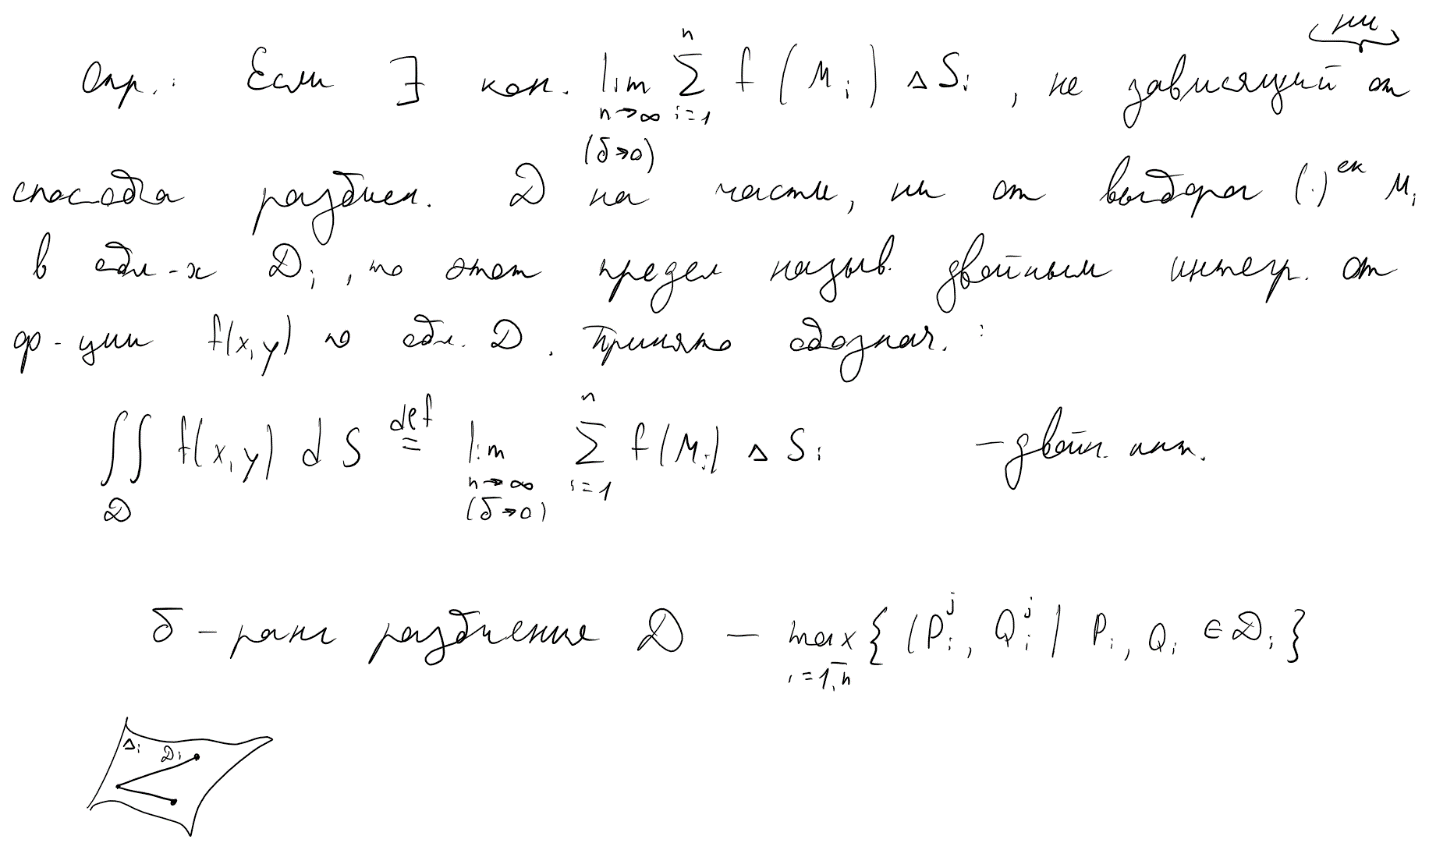 ни
Опр.: Если ∃ кон. lim_{n→∞ (δ→0)} Σ_{i=1}^{n} f(M_i) ΔS_i, не зависящий от
способа разбиен. D на части, ни от выбора (·)^{ек} M_i
в обл-х D_i, то этот предел назыв. двойным интегр. от
ф-ции f(x,y) по обл. D. Принято обознач.:
∬_D f(x,y) dS \overset{def}{=} lim_{n→∞ (δ→0)} Σ_{i=1}^{n} f(M_i) ΔS_i – двойн. инт.
δ – ранг разбиение D – max_{i=\overline{1,n}} {(P_i^j, Q_i^j | P_i, Q_i ∈ D_i}
Δ_i D_i